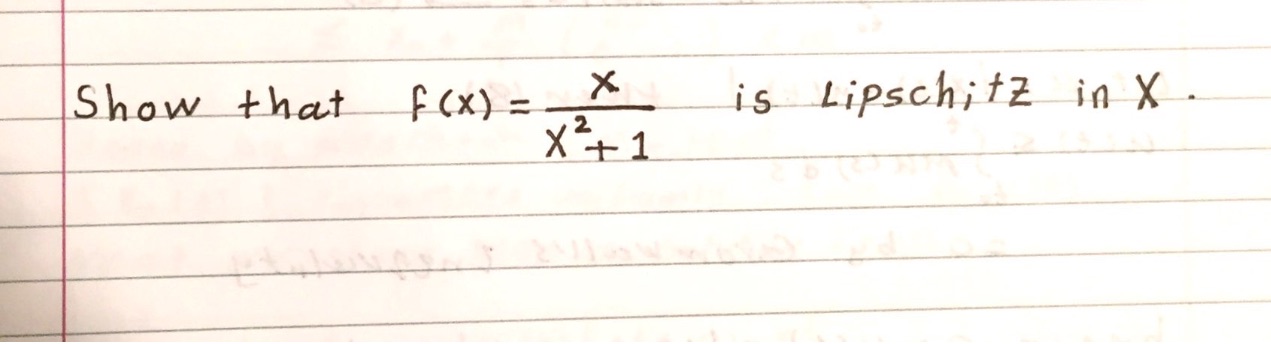 Show that f(x) = x / (x² + 1) is Lipschitz in X.